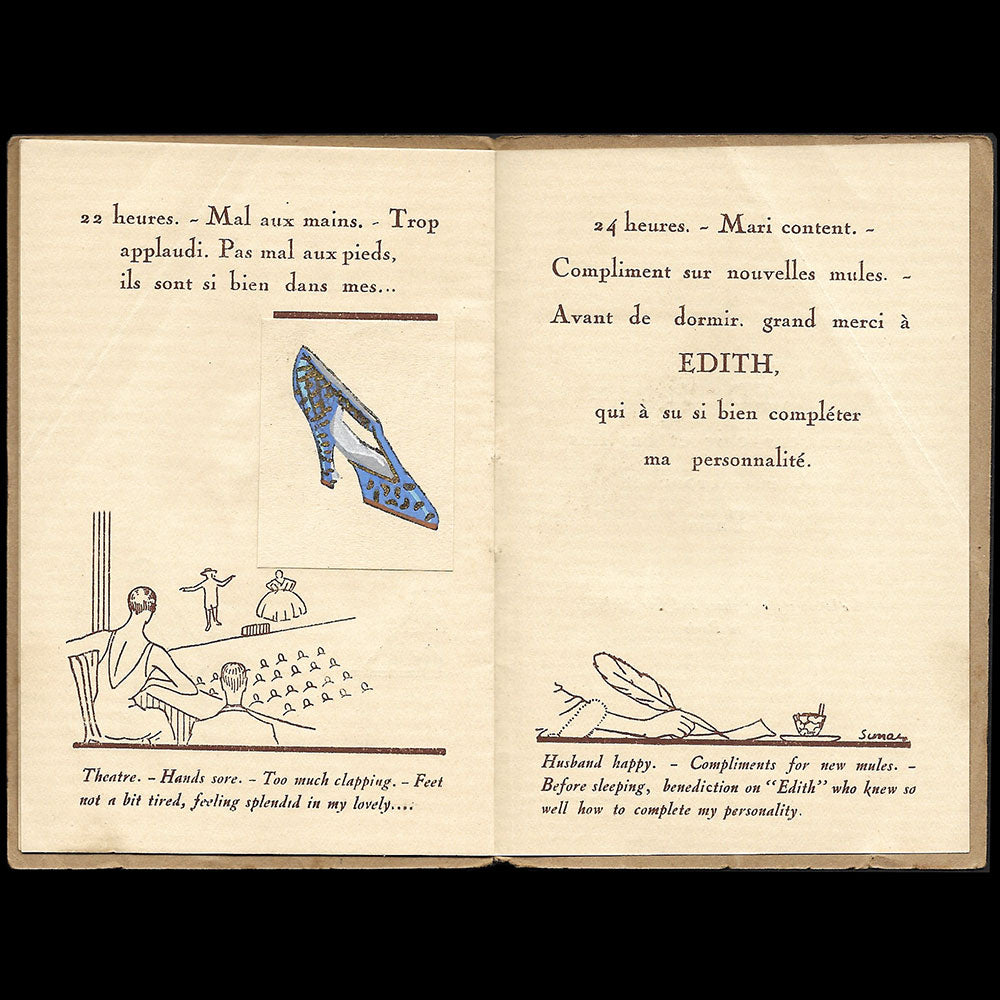 22 heures. - Mal aux mains. - Trop
applaudi. Pas mal aux pieds,
ils sont si bien dans mes...
Theatre. - Hands sore. - Too much clapping. - Feet
not a bit tired, feeling splendid in my lovely....
24 heures. - Mari content. -
Compliment sur nouvelles mules. -
Avant de dormir. grand merci à
EDITH,
qui à su si bien compléter
ma personnalité.
Husband happy. - Compliments for new mules. -
Before sleeping, benediction on "Edith" who knew so
well how to complete my personality.